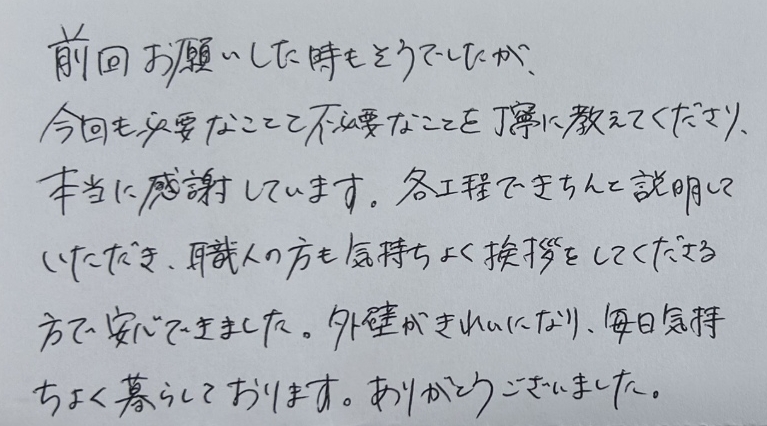 前回お願いした時もそうでしたが、
今回も必要なことと不必要なことを丁寧に教えてくださり、
本当に感謝しています。各工程できちんと説明して
いただき、職人の方も気持ちよく挨拶をしてくださる
方で安心できました。外壁がきれいになり、毎日気持
ちよく暮らしております。ありがとうございました。